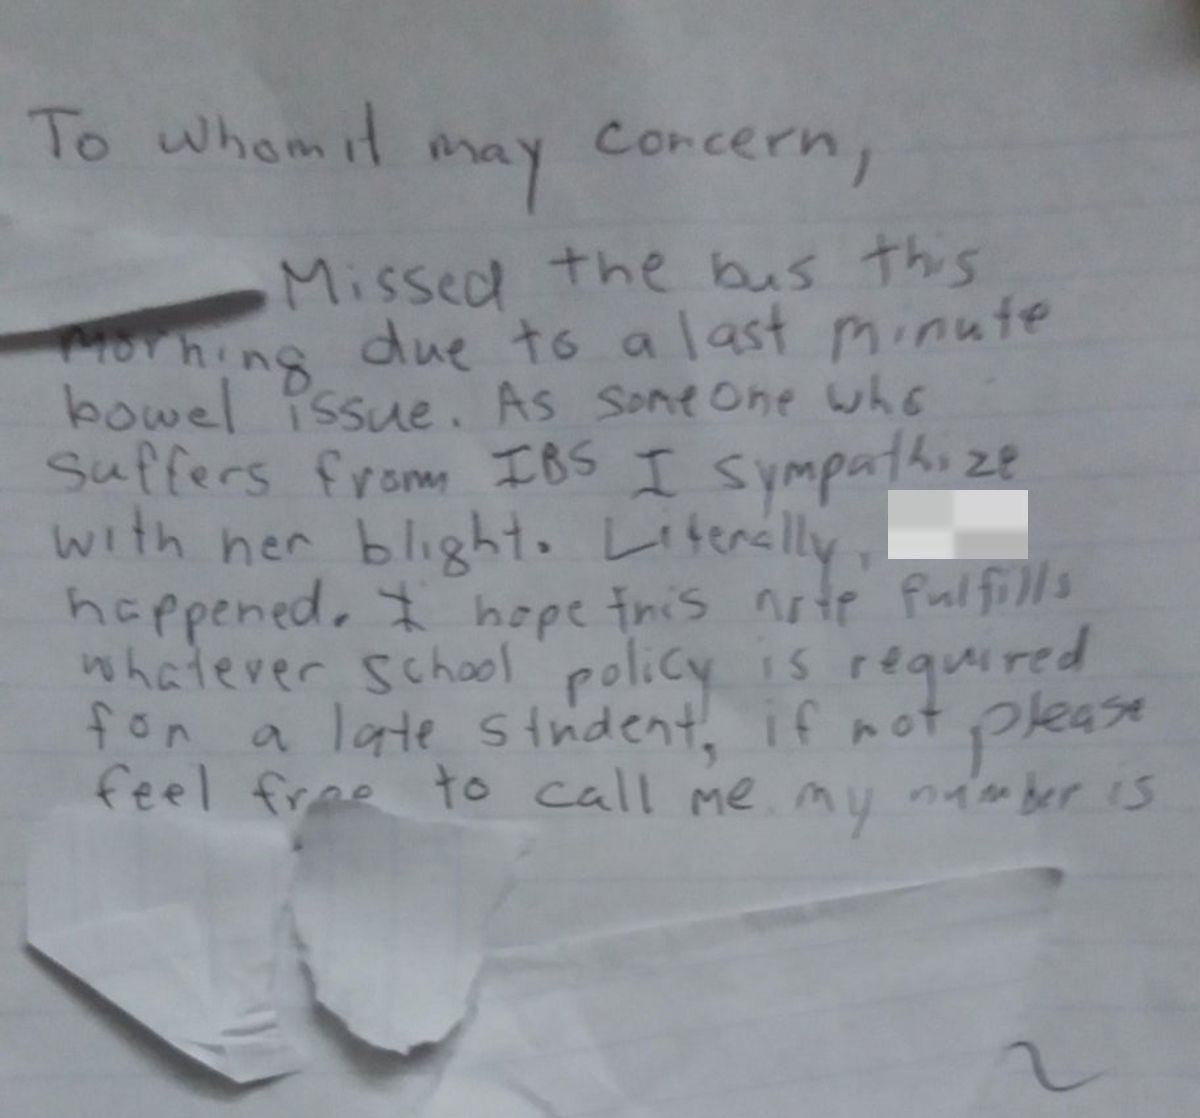 To whom it may concern,
Missed the bus this
morning due to a last minute
bowel issue. As someone who
suffers from IBS I sympathize
with her blight. Literally,
happened. I hope this note fulfills
whatever school policy is required
for a late student, if not please
feel free to call me my number is